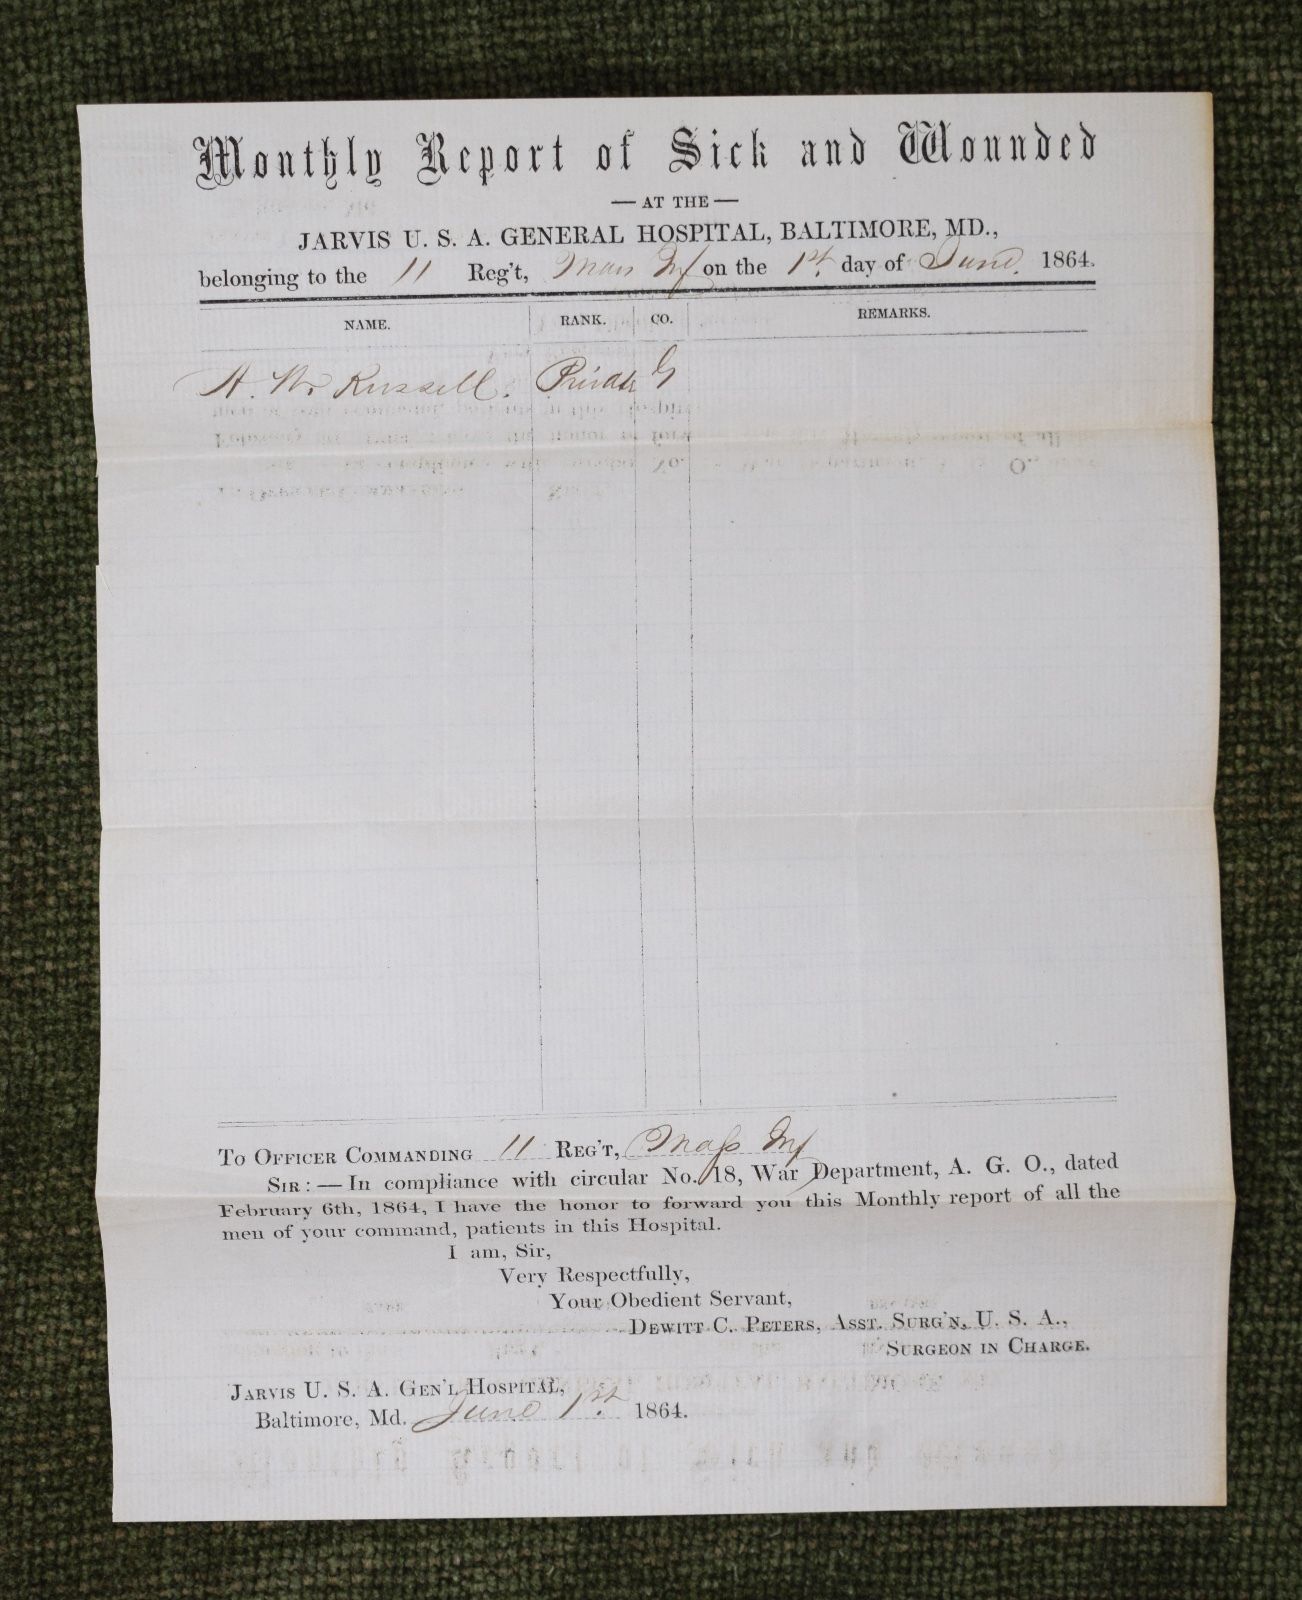 Monthly Report of Sick and Wounded
— AT THE —
JARVIS U. S. A. GENERAL HOSPITAL, BALTIMORE, MD.,
belonging to the 11 Reg't, Mass Inf on the 1st. day of June. 1864.
NAME. RANK. CO. REMARKS.
Russell. Private G
TO OFFICER COMMANDING 11 REG'T, Mass Inf
SIR: — In compliance with circular No. 18, War Department, A. G. O., dated
February 6th, 1864, I have the honor to forward you this Monthly report of all the
men of your command, patients in this Hospital.
I am, Sir,
Very Respectfully,
Your Obedient Servant,
DEWITT C. PETERS, ASST. SURG'N, U. S. A.,
SURGEON IN CHARGE.
JARVIS U. S. A. GEN'L HOSPITAL,
Baltimore, Md. June 1st. 1864.